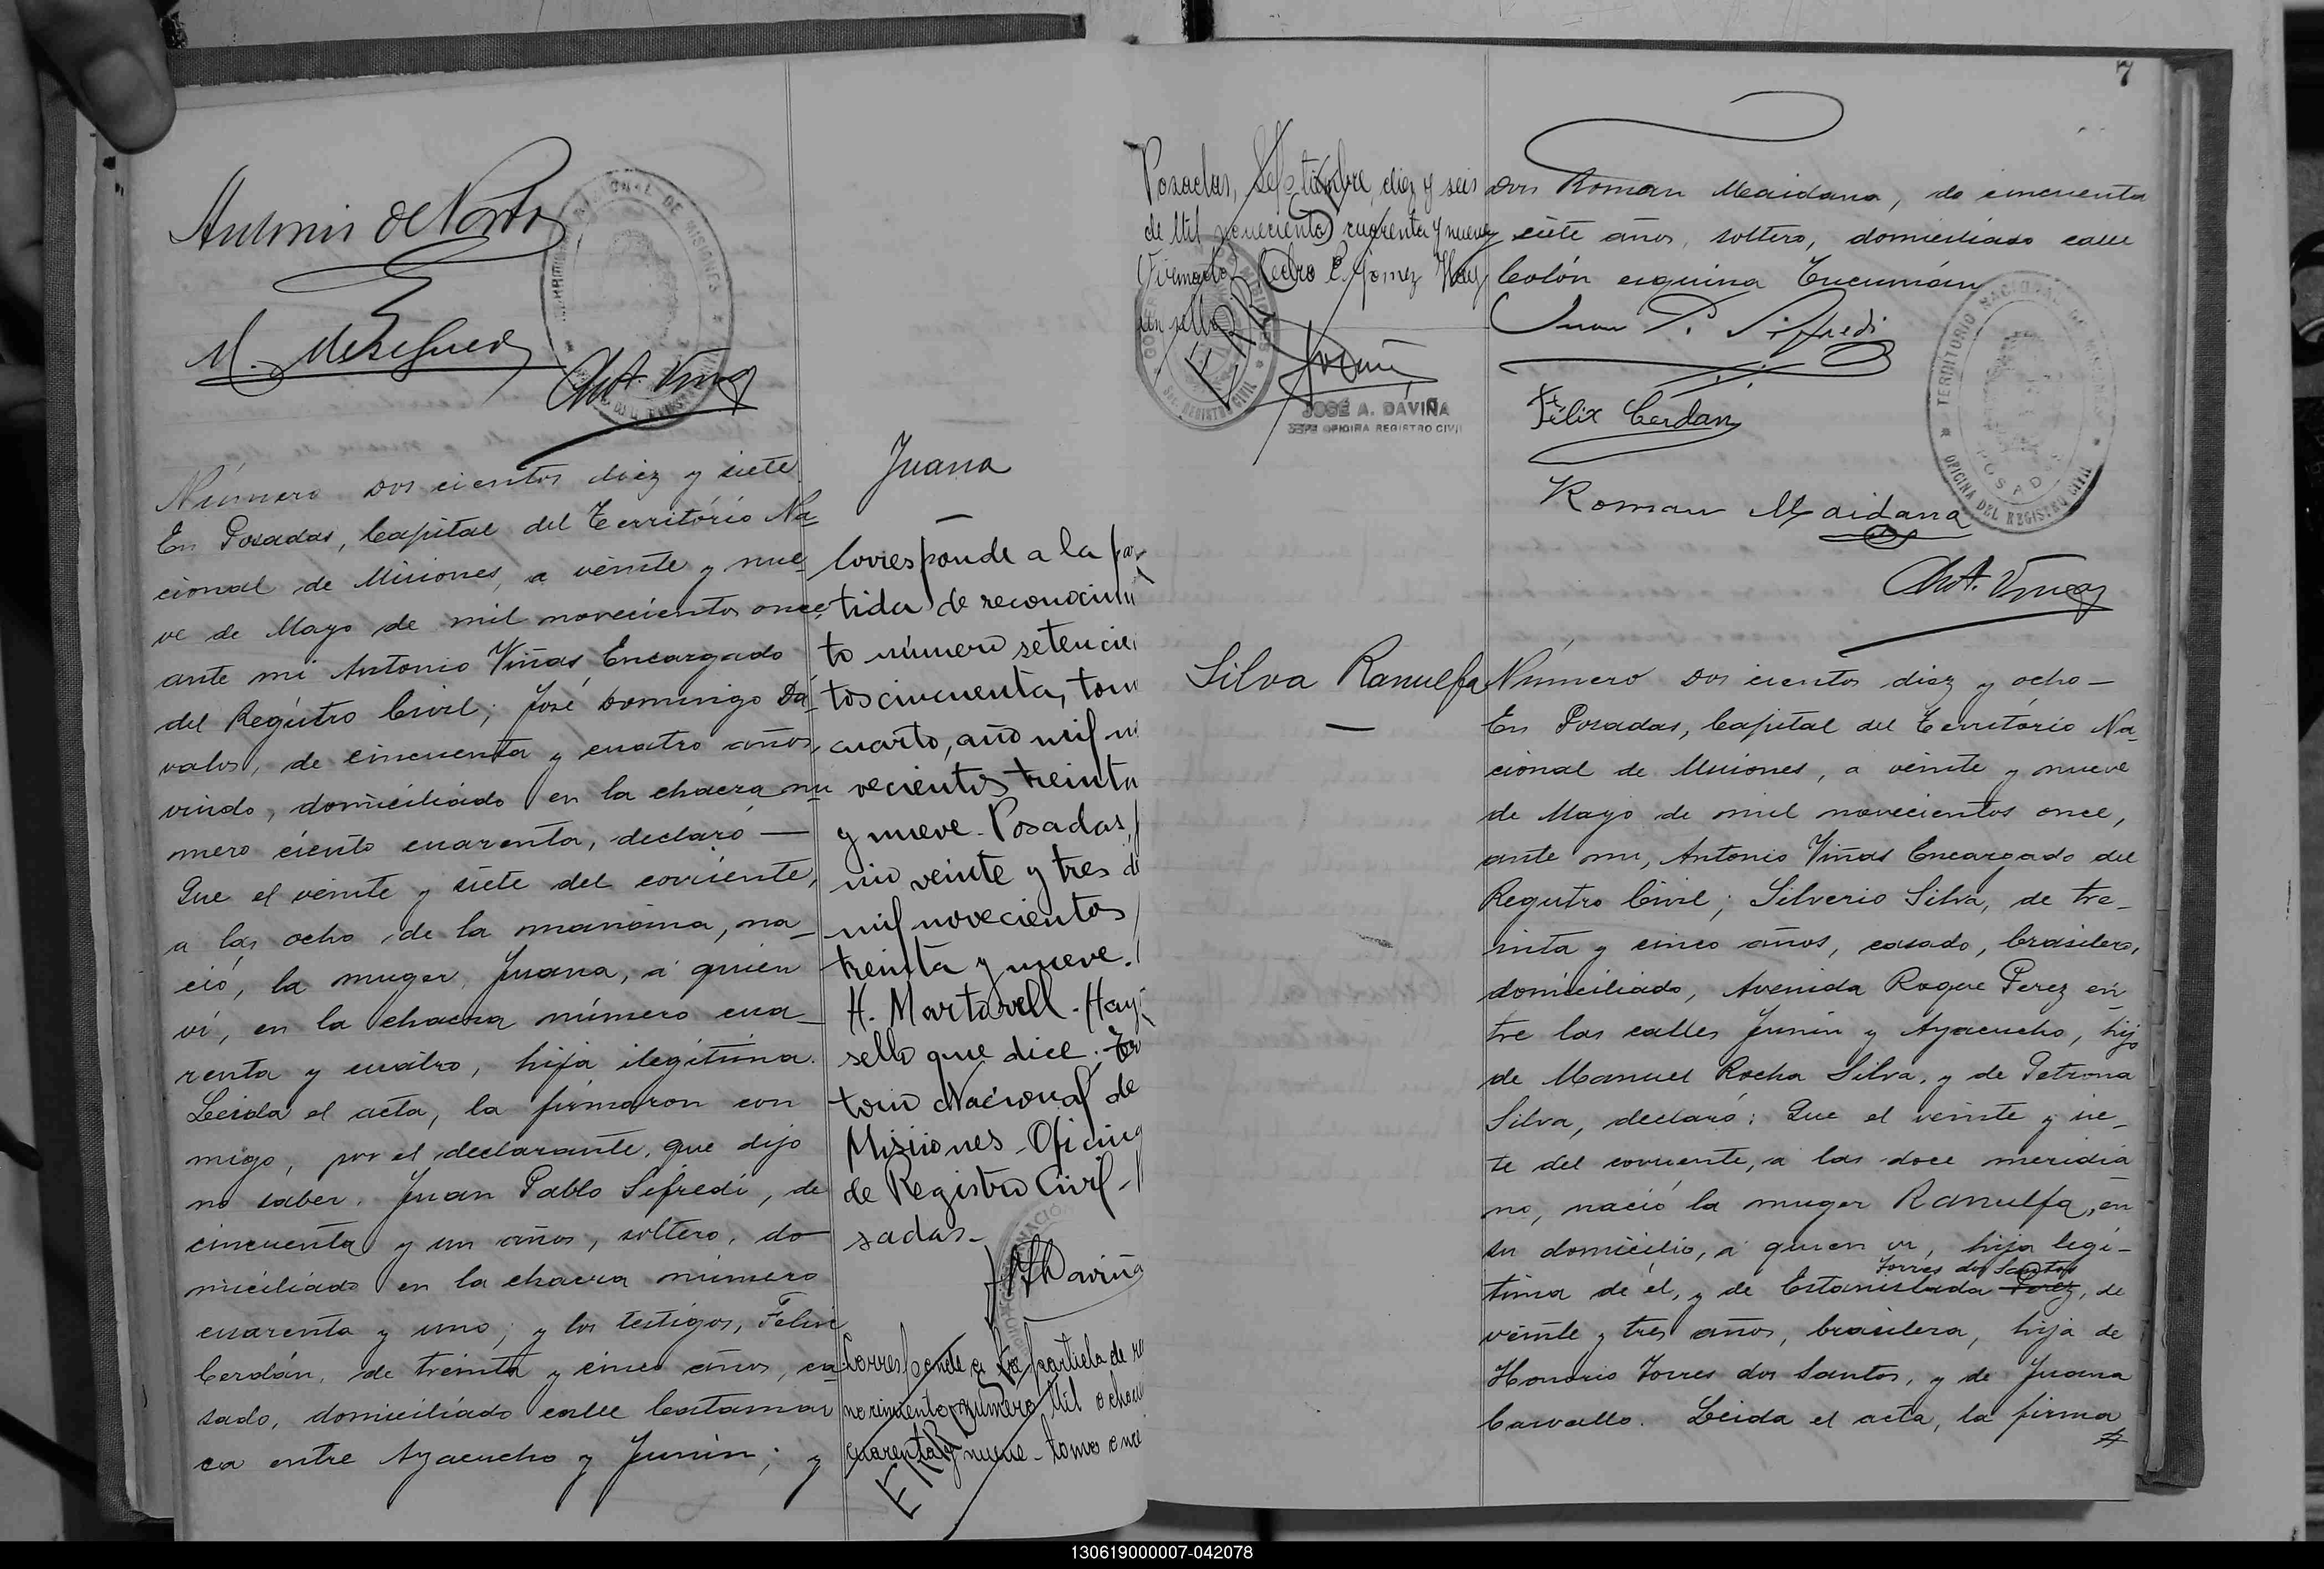 Antonio de Norte
M. Meseguer
Ant. Viñas
Número dos cientos diez y siete
En Posadas, Capital del Território Na-
cional de Misiones, a veinte y nue-
ve de Mayo de mil novecientos once,
ante mi Antonio Viñas, Encargado
del Registro Civil; José Domingo Dá-
valos, de cincuenta y cuatro años,
viudo, domiciliado en la chacra nu-
mero ciento cuarenta, declaró —
Que el veinte y siete del corriente,
a las ocho de la mañana, na-
ció, la muger, Juana, á quien
ví, en la chacra número cua-
renta y cuatro, hija ilegítima.
Leida el acta, la firmaron con
migo, por el declarante, que dijo
no saber, Juan Pablo Sifredi, de
cincuenta y un años, soltero, do-
miciliado en la chacra número
cuarenta y uno; y los testigos, Felix
Cerdán, de treinta y cinco años, ca-
sado, domiciliado calle Catamar
ca entre Ayacucho y Junin; y
Juana
Corresponde a la par
tida de reconocimi
to número setecien
tos cincuenta, tom
cuarto, año mil n
vecientos treinta
y nueve. Posadas,
nio veinte y tres d
mil novecientos
treinta y nueve.
H. Martorell. Hay
sello que dice: Ter
torio Nacional de
Misiones. Oficina
de Registro Civil.
sadas.
Daviña
Corresponde a la partida de re
nocimiento número Mil ocho
cuarenta y nueve tomo once
ERR
7
Posadas, Septiembre, diez y seis
de Mil novecientos cuarenta y nueve
Firmado Pedro E. Gomez Hay
un sello
ERR
JOSÉ A. DAVIÑA
JEFE OFICINA REGISTRO CIVIL
don Roman Maidana, de cincuenta
y siete años, soltero, domiciliado calle
Colón esquina Tucumán
Juan P. Siffredi
Félix Cerdan
Roman Maidana
TERRITORIO NACIONAL DE MISIONES
POSADAS
OFICINA DEL REGISTRO CIVIL
Ant. Viñas
Silva Ranulfa
Número dos cientos diez y ocho —
En Posadas, Capital del Território Na-
cional de Misiones, a veinte y nueve
de Mayo de mil novecientos once,
ante mi, Antonio Viñas Encargado del
Registro Civil; Silverio Silva, de tre-
inta y cinco años, casado, brasilero,
domiciliado, Avenida Roque Perez en-
tre las calles Junin y Ayacucho, hijo
de Manuel Rocha Silva, y de Petrona
Silva, declaró: Que el veinte y sie-
te del corriente, a las doce meridia
no, nació la muger Ranulfa, en
su domicilio, á quien vi, hija legí-
Torres dos Santos
tima de él, y de Estanislada Perez, de
veinte y tres años, brasilera, hija de
Honorio Torres dos Santos, y de Juana
Carvallo. Leida el acta, la firma
130619000007-042078